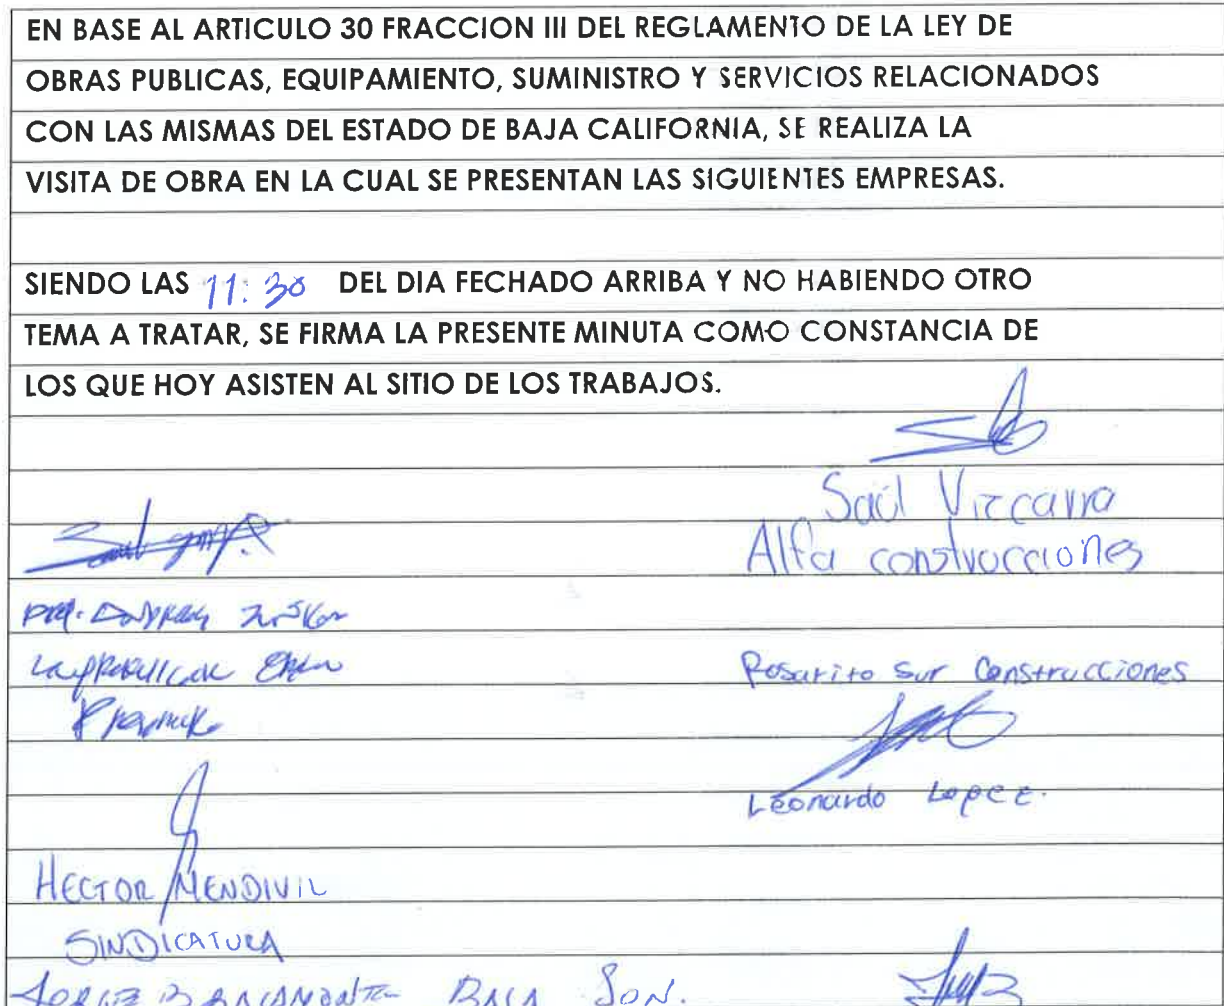 EN BASE AL ARTICULO 30 FRACCION III DEL REGLAMENTO DE LA LEY DE
OBRAS PUBLICAS, EQUIPAMIENTO, SUMINISTRO Y SERVICIOS RELACIONADOS
CON LAS MISMAS DEL ESTADO DE BAJA CALIFORNIA, SE REALIZA LA
VISITA DE OBRA EN LA CUAL SE PRESENTAN LAS SIGUIENTES EMPRESAS.
SIENDO LAS 11:30 DEL DIA FECHADO ARRIBA Y NO HABIENDO OTRO
TEMA A TRATAR, SE FIRMA LA PRESENTE MINUTA COMO CONSTANCIA DE
LOS QUE HOY ASISTEN AL SITIO DE LOS TRABAJOS.
Saúl Vizcarra
Alfa construcciones
Rosarito Sur Construcciones
Leonardo Lopez.
HECTOR MENDIVIL
SINDICATURA
JORGE